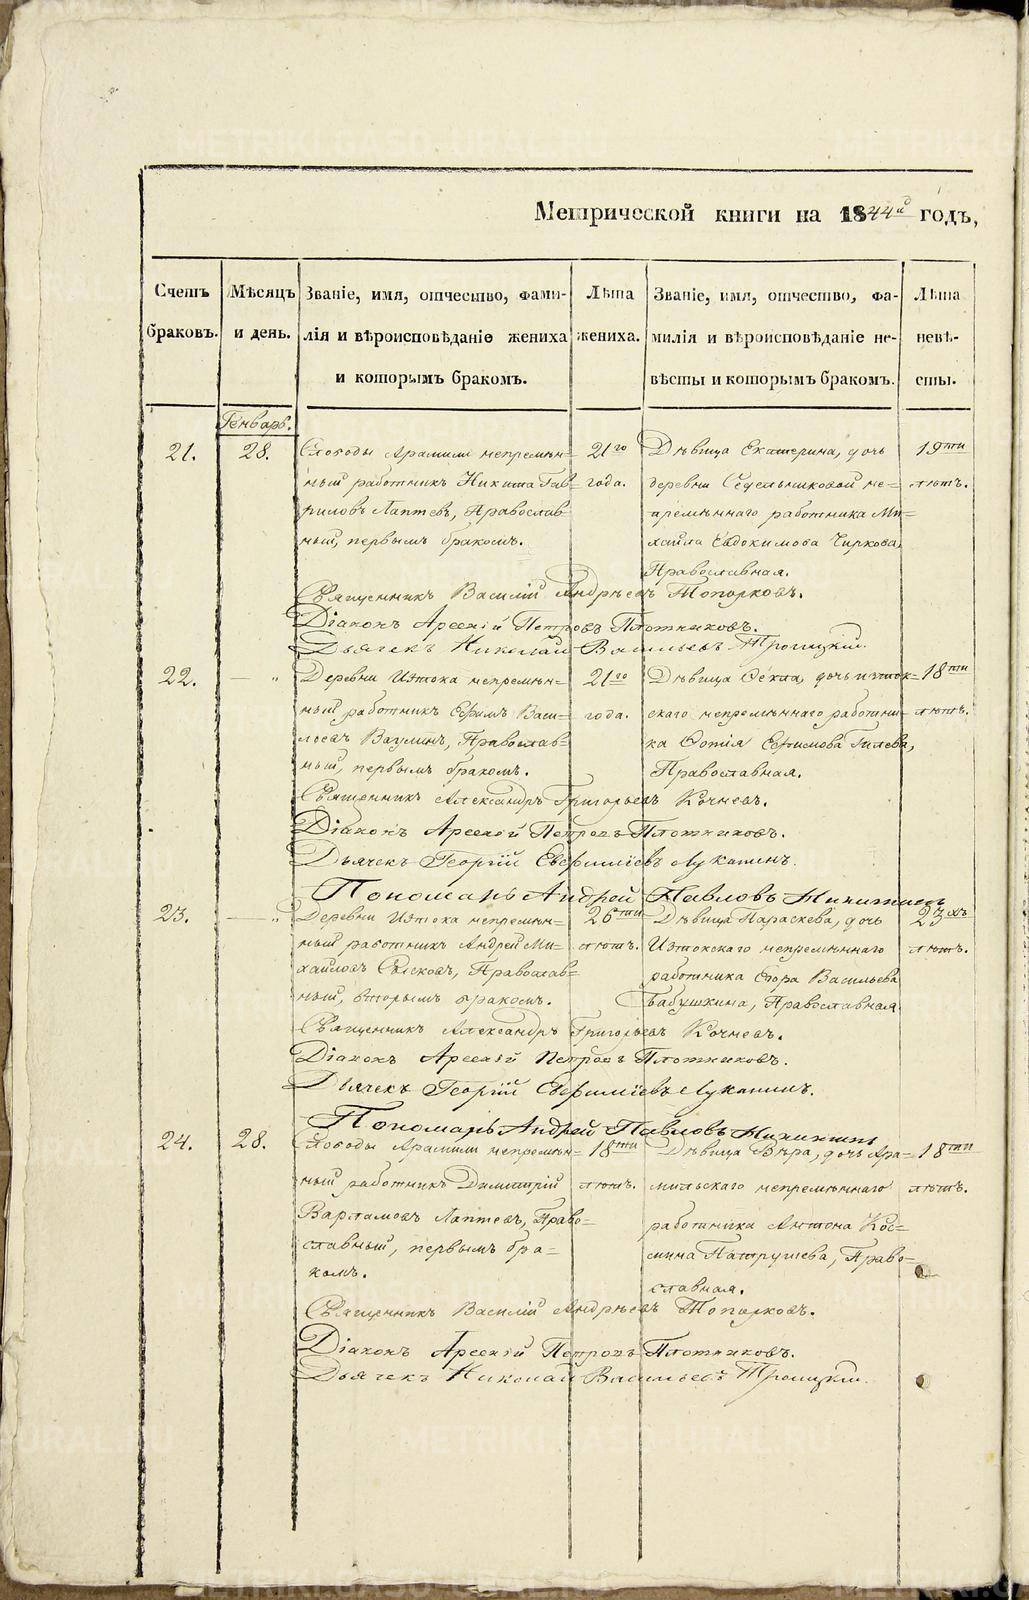 Метрической книги на 1844й годъ,
Счетъ браковъ.
Мѣсяцъ и день.
Званіе, имя, отчество, фами-
лія и вѣроисповѣданіе жениха
и которымъ бракомъ.
Лѣта
жениха.
Званіе, имя, отчество, фа-
милія и вѣроисповѣданіе не-
вѣсты и которымъ бракомъ.
Лѣта
невѣ-
сты.
Генварь.
21.
28.
Слободы Арамили непремѣн-
ный работникъ Никита Гав-
риловъ Лаптевъ, Православ-
ный, первымъ бракомъ.
21го
года.
Дѣвица Екатерина, дочь
деревни Седельниковой не-
премѣннаго работника Ми-
хайла Евдокимова Чиркова,
Православная.
19ти
лѣтъ.
Священникъ Василій Андрѣевъ Топорковъ.
Діаконъ Арсеній Петровъ Плотниковъ.
Дьячекъ Николай Васильевъ Троицкій.
22.
— "
Деревни Истока непремѣн-
ный работникъ Ефимъ Васи-
льевъ Вагулинъ, Православ-
ный, первымъ бракомъ.
21го
года.
Дѣвица Ѳекла, дочь исток-
скаго непремѣннаго работни-
ка Ѳотія Ефимова Гилева,
Православная.
18ти
лѣтъ.
Священникъ Александръ Григорьевъ Кочневъ.
Діаконъ Арсеній Петровъ Плотниковъ.
Дьячекъ Георгій Евфиміевъ Луканинъ.
Пономарь Андрей Павловъ Никитинъ
23.
— "
Деревни Истока непремѣн-
ный работникъ Андрей Ми-
хайловъ Сысковъ, Православ-
ный, вторымъ бракомъ.
26ти
лѣтъ.
Дѣвица Параскева, дочь
Истокскаго непремѣннаго
работника Егора Васильева
Бабушкина, Православная
23хъ
лѣтъ.
Священникъ Александръ Григорьевъ Кочневъ.
Діаконъ Арсеній Петровъ Плотниковъ.
Дьячекъ Георгій Евфиміевъ Луканинъ.
Пономарь Андрей Павловъ Никитинъ
24.
28.
Слободы Арамили непремѣн-
ный работникъ Димитрій
Варламовъ Лаптевъ, Право-
славный, первымъ бра-
комъ.
18ти
лѣтъ.
Дѣвица Вѣра, дочь Ара-
мильскаго непремѣннаго
работника Антона Кос-
мина Патрушева, Право-
славная.
18ти
лѣтъ.
Священникъ Василій Андрѣевъ Топорковъ.
Діаконъ Арсеній Петровъ Плотниковъ.
Дьячекъ Николай Васильевъ Троицкій.
METRIKI.GASO-URAL.RU